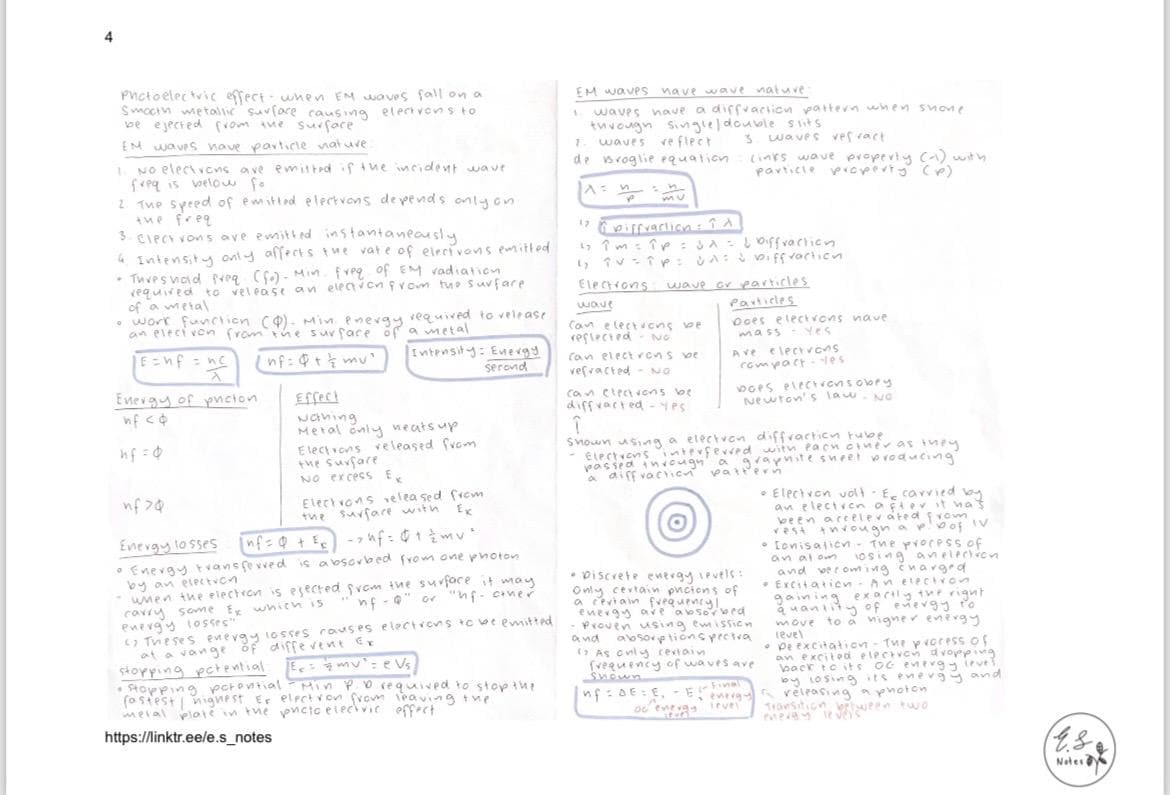 4
Photoelectric effect - when EM waves fall on a
smooth metallic surface causing electrons to
be ejected from the surface
EM waves have particle nature:
1. No electrons are emitted if the incident wave
freq is below f₀
2. The speed of emitted electrons depends only on
the freq
3. Electrons are emitted instantaneously
4. Intensity only affects the rate of electrons emitted
• Threshold freq. (f₀) - Min. freq. of EM radiation
required to release an electron from the surface
of a metal
• Work function (Φ) - Min. energy required to release
an electron from the surface of a metal
E = hf = hc/λ
hf = Φ + ½ mv²
Intensity = Energy/second
Energy of photon
Effect
hf < Φ
Nothing
Metal only heats up
hf = Φ
Electrons released from
the surface
No excess Eₖ
hf > Φ
Electrons released from
the surface with Eₖ
Energy losses
hf = Φ + Eₖ
-> hf = Φ + ½ mv²
• Energy transferred is absorbed from one photon
by an electron
- When the electron is ejected from the surface it may
carry some Eₖ which is "hf - Φ" or "hf - other
energy losses"
↳ Theses energy losses causes electrons to be emitted
at a range of different Eₖ
Stopping potential
Eₖ = ½ mv² = eVₛ
• Stopping potential - Min P.D required to stop the
fastest / highest Eₖ electron from leaving the
metal plate in the photoelectric effect
EM waves have wave nature:
1. Waves have a diffraction pattern when shone
through single/double slits
2. waves reflect 3. waves refract
de Broglie equation: links wave property (λ) with
particle property (p)
λ = h/p = h/mv
↳ ↑ Diffraction = ↑ λ
↳ ↑ m = ↑ p = ↓ λ = ↓ Diffraction
↳ ↑ v = ↑ p = ↓ λ = ↓ Diffraction
Electrons: wave or particles
Wave
Particles
Can electrons be
reflected - No
Can electrons be
refracted - No
Can electrons be
diffracted - Yes
Does electrons have
mass - Yes
Are electrons
compact - Yes
Does electrons obey
Newton's law - No
↑
Shown using a electron diffraction tube
- Electrons interferred with each other as they
passed through a graphite sheet producing
a diffraction pattern
• Electron volt - Eₖ carried by
an electron after it has
been accelerated from
rest through a p.D of 1V
• Ionisation - The process of
an atom losing an electron
and becoming charged
• Excitation - An electron
gaining exactly the right
quantity of energy to
move to a higher energy
level
• Deexcitation - The process of
an excited electron dropping
back to its OG energy level
by losing its energy and
releasing a photon
• Discrete energy levels:
Only certain photons of
a certain frequency/
energy are absorbed
- Proven using emission
and absorption spectra
↳ As only certain
frequency of waves are
shown
hf = ΔE = E₁ - E₂
final
energy
level
OG energy
level
Transition between two
energy levels
https://linktr.ee/e.s_notes
E.S
Notes